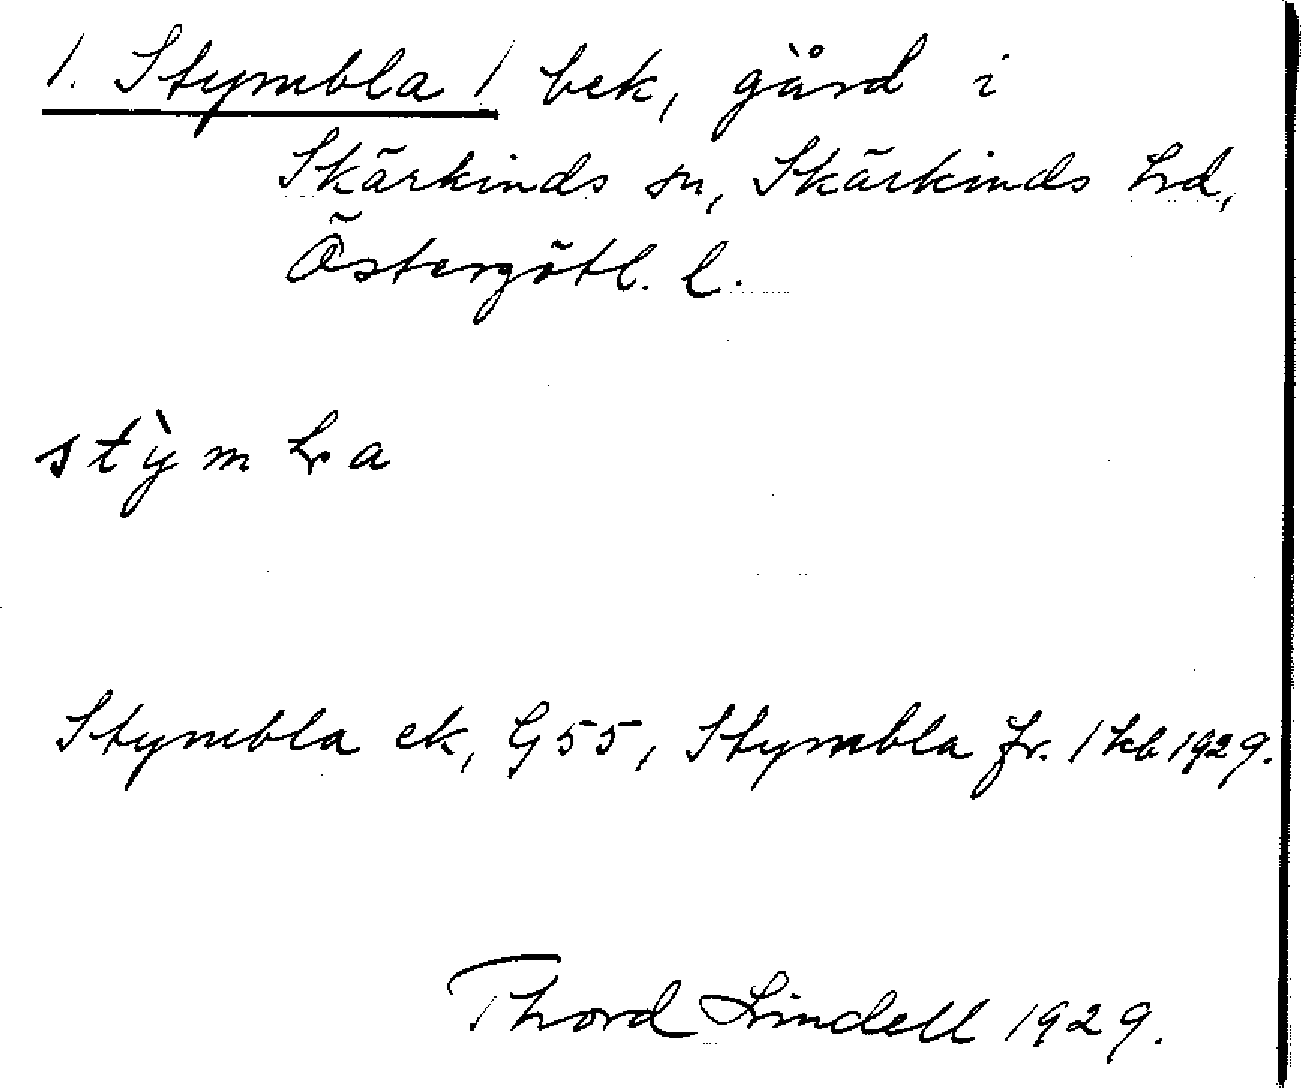 1. Stymbla / bek, gård i
Skärkinds sn, Skärkinds hd,
Östergötl. l.
Stymbla ek, G55, Stymbla fr. 1 kb 1929.
Thord Lindell 1929.